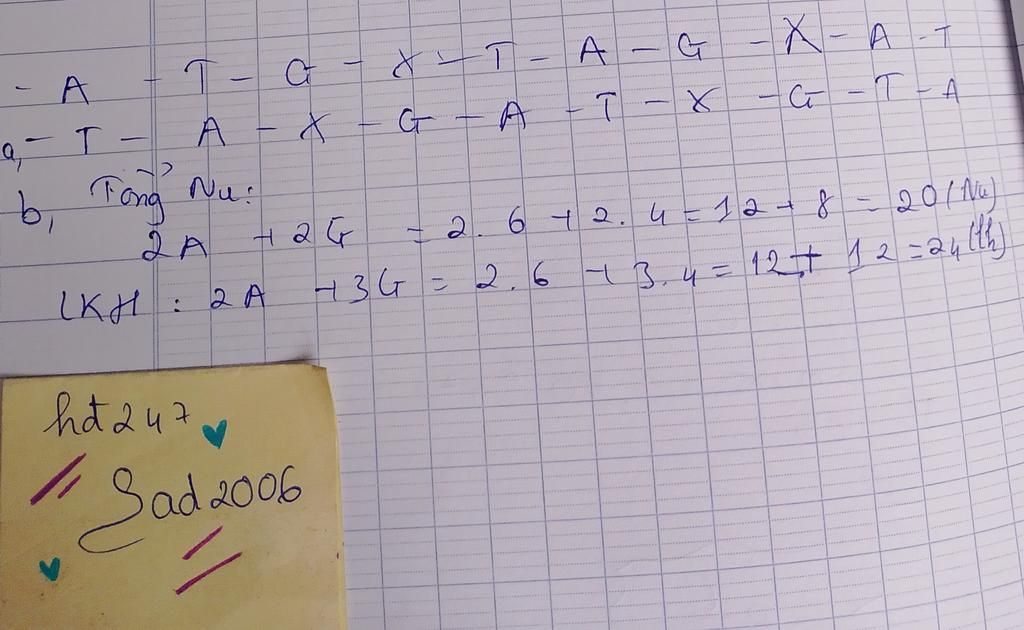 - A - T - G - X - T - A - G - X - A - T
a, - T - A - X - G - A - T - X - G - T - A
b, Tổng Nu:
2A + 2G = 2.6 + 2.4 = 12 + 8 = 20 (Nu)
LKH : 2A + 3G = 2.6 + 3.4 = 12 + 12 = 24 (lk)
hđ247
Sad2006